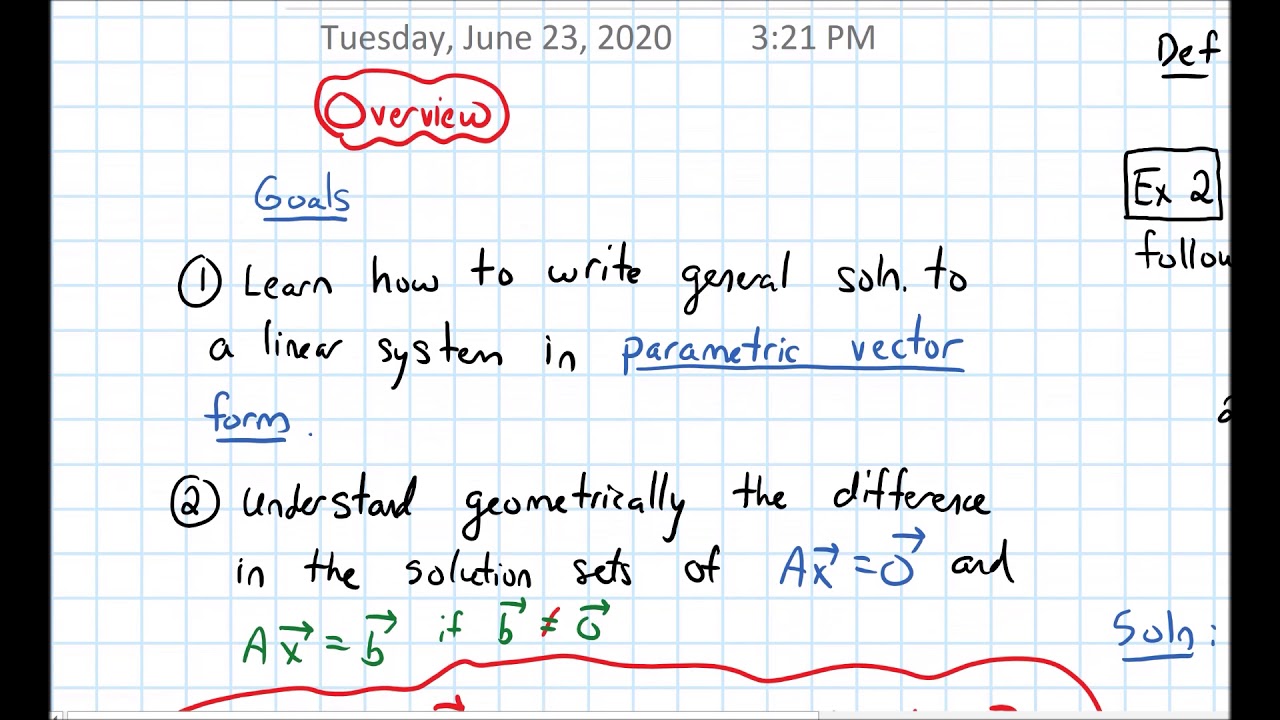 Tuesday, June 23, 2020 3:21 PM
Overview
Goals
① Learn how to write general soln. to
a linear system in parametric vector
form.
② Understand geometrically the difference
in the solution sets of Ax⃗ = 0⃗ and
Ax⃗ = b⃗ if b⃗ ≠ 0⃗
Def
Ex 2
Soln: